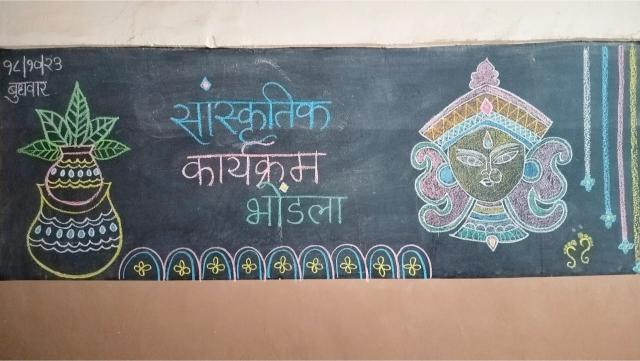 १८/१०/२३
बुधवार
सांस्कृतिक
कार्यक्रम
भोंडला